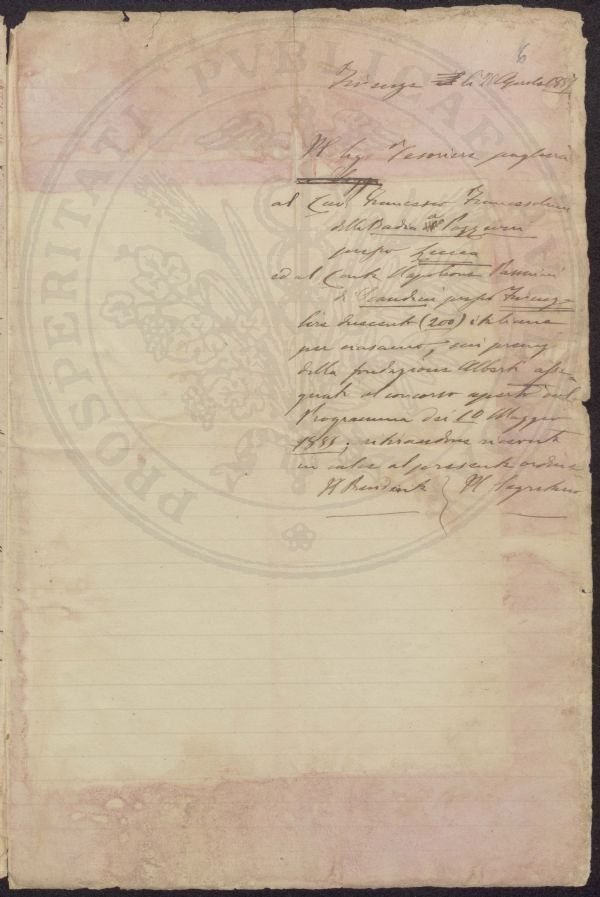 6
Firenze li 28 Agosto 1887
Il Sig. Tesoriere pagherà
al Cav. Francesco Franceschini
della Badia a Pozzeveri
presso Lucca
ed al Conte Napoleone Passerini
di Scandicci presso Firenze
lire duecento (200) italiane
per ciascuno, sui premj
della fondazione Alberti asse-
gnati al concorso aperto col
Programma dei 10 Maggio
1885; ritirandone ricevute
in calce al presente ordine
Il Presidente Il Segretario
PROSPERITATI PUBLICAE